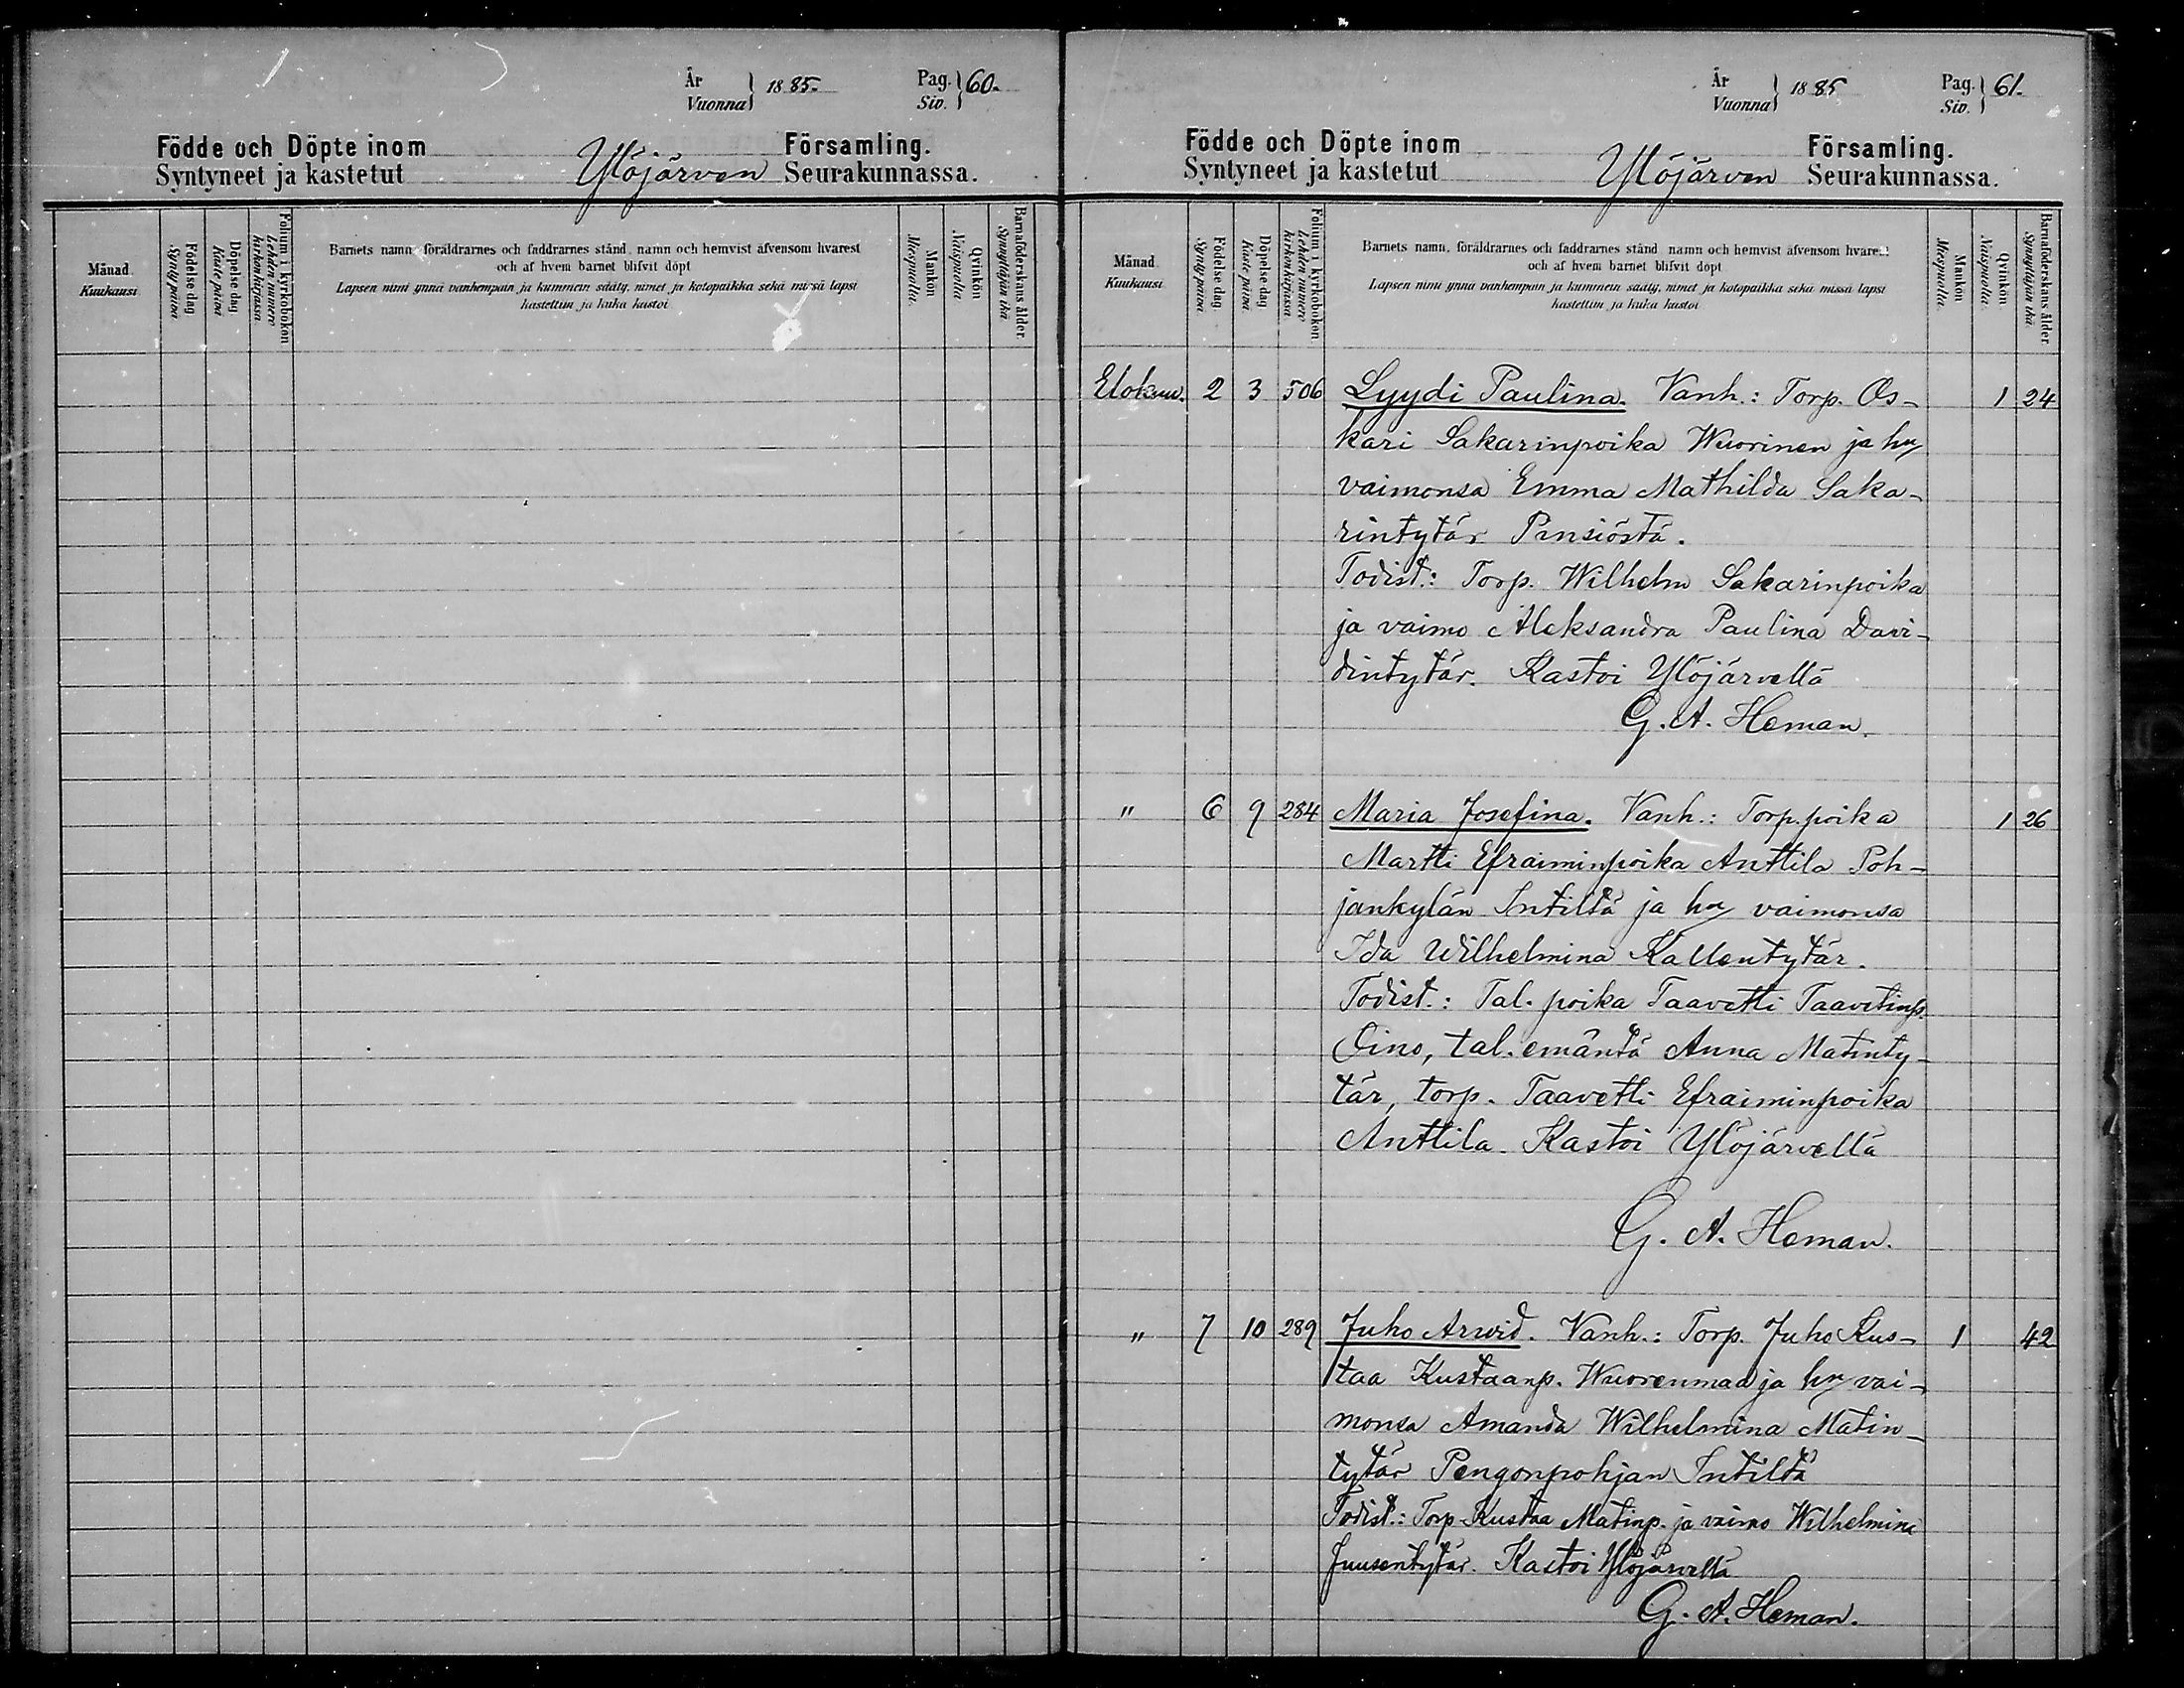 År
Vuonna 1885.
Pag.
Siv. 60.
Födde och Döpte inom
Syntyneet ja kastetut
Ylöjärven
Församling.
Seurakunnassa.
Månad
Kuukausi
Födelse dag
Synty päivä
Döpelse dag
Kaste päivä
Folium i kyrkoboken
Lehden numero
kirkonkirjassa.
Barnets namn, föräldrarnes och faddrarnes stånd, namn och hemvist äfvensom hvarest
och af hvem barnet blifvit döpt
Lapsen nimi ynnä vanhempain ja kummein sääty, nimet ja kotopaikka sekä missä lapsi
kastettiin ja kuka kastoi
Mankön
Miespuolia.
Qvinkön
Naispuolia
Barnaföderskans ålder.
Synnyttäjän ikä.
År
Vuonna 1885
Pag.
Siv. 61.
Födde och Döpte inom
Syntyneet ja kastetut
Ylöjärven
Församling.
Seurakunnassa.
Månad
Kuukausi
Födelse dag
Synty päivä.
Döpelse dag
Kaste päivä
Folium i kyrkoboken
Lehden numero
kirkonkirjassa
Barnets namn, föräldrarnes och faddrarnes stånd, namn och hemvist äfvensom hvarest
och af hvem barnet blifvit döpt
Lapsen nimi ynnä vanhempain ja kummein sääty, nimet ja kotopaikka sekä missä lapsi
kastettiin ja kuka kastoi
Mankön
Miespuolia.
Qvinkön
Naispuolia.
Barnaföderskans ålder
Synnyttäjän ikä
Elokuu. 2 3 506 Lyydi Paulina. Vanh.: Torp. Os- 1 24
kari Sakarinpoika Wuorinen ja hn
vaimonsa Emma Mathilda Saka-
rintytär Pinsiöstä.
Todist.: Torp. Wilhelm Sakarinpoika
ja vaimo Aleksandra Paulina Davi-
dintytär. Kastoi Ylöjärvellä
G. A. Heman.
" 6 9 284 Maria Josefina. Vanh.: Torp.poika 1 26
Martti Efraiminpoika Anttila Poh-
jankylän Intiltä ja hn vaimonsa
Ida Wilhelmina Kallentytär.
Todist.: Tal. poika Taavetti Taavetinp.
Oino, tal. emäntä Anna Matinty-
tär, torp. Taavetti Efraiminpoika
Anttila. Kastoi Ylöjärvellä
G. A. Heman.
" 7 10 289 Juho Arwid. Vanh.: Torp. Juho Kus- 1 42
taa Kustaanp. Wuorenmaa ja hn vai-
monsa Amanda Wilhelmina Matin-
tytär Pengonpohjan Intiltä
Todist.: Torp. Kustaa Matinp. ja vaimo Wilhelmina
Juusentytär. Kastoi Ylöjärvellä
G. A. Heman.